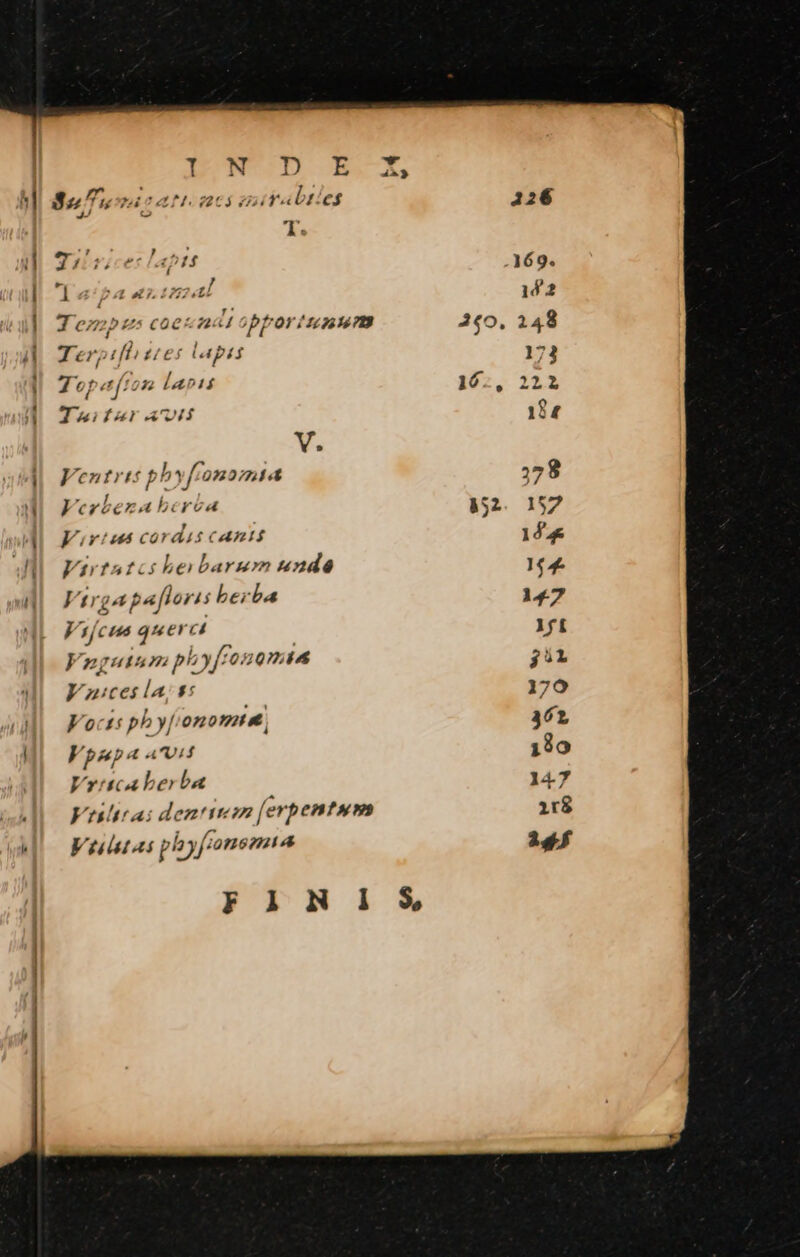 I N D E X,
Suffumigationes mirabiles 226
T.
lapis 169.
Talpa animal 182
Tempus coenandi opportunum 250. 248
Terpistrites lapis 173
Topasion lapis 222
Tuitur avis
V.
Ventris physionomia 378
Verbena herba 152. 157
Virtus cordis canis 184
Virtutes herbarum unde 154
Virga pastoris herba 147
Viscus querci 151
Vnguium physionomia
Vnices lapis 170
Vocis physionomia 362
Vpupa avis 180
Vrtica herba 147
Vtilitas dentium serpentum 218
Vtilitas physionomia
F I N I S,